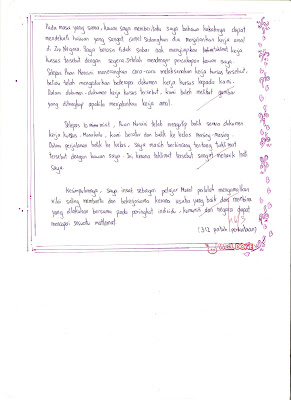 Pada masa yang sama, kawan saya memberitahu saya bahawa kakaknya dapat
mendekati haiwan yang sangat comel
di Zoo Negara. Saya berasa tidak sabar nak menyiapkan kerja
kursus tersebut dengan segera setelah mendengar percakapan kawan saya.
Selepas Puan Noraini menerangkan cara-cara melaksanakan kerja kursus tersebut,
beliau telah mengedarkan beberapa dokumen kerja kursus kepada kami.
Dalam dokumen-dokumen kerja kursus tersebut, kami boleh melihat gambar
yang ditangkap apabila menjalankan kerja amal.
Selepas 10 minit, Puan Noraini telah mengutip balik semua dokumen
kerja kursus. Manakala, kami beratur dan balik ke kelas masing-masing.
Dalam perjalanan balik ke kelas, saya masih berbincang tentang
tersebut dengan kawan saya. Ini kerana taklimat tersebut sangat menarik bagi
saya.
Kesimpulannya, saya insaf sebagai pelajar
nilai saling membantu dan bekerjasama kerana usaha yang baik dan
yang dilakukan bersama pada peringkat individu, komuniti dan negara dapat
mencapai sesuatu matlamat.
(312 patah perkataan)